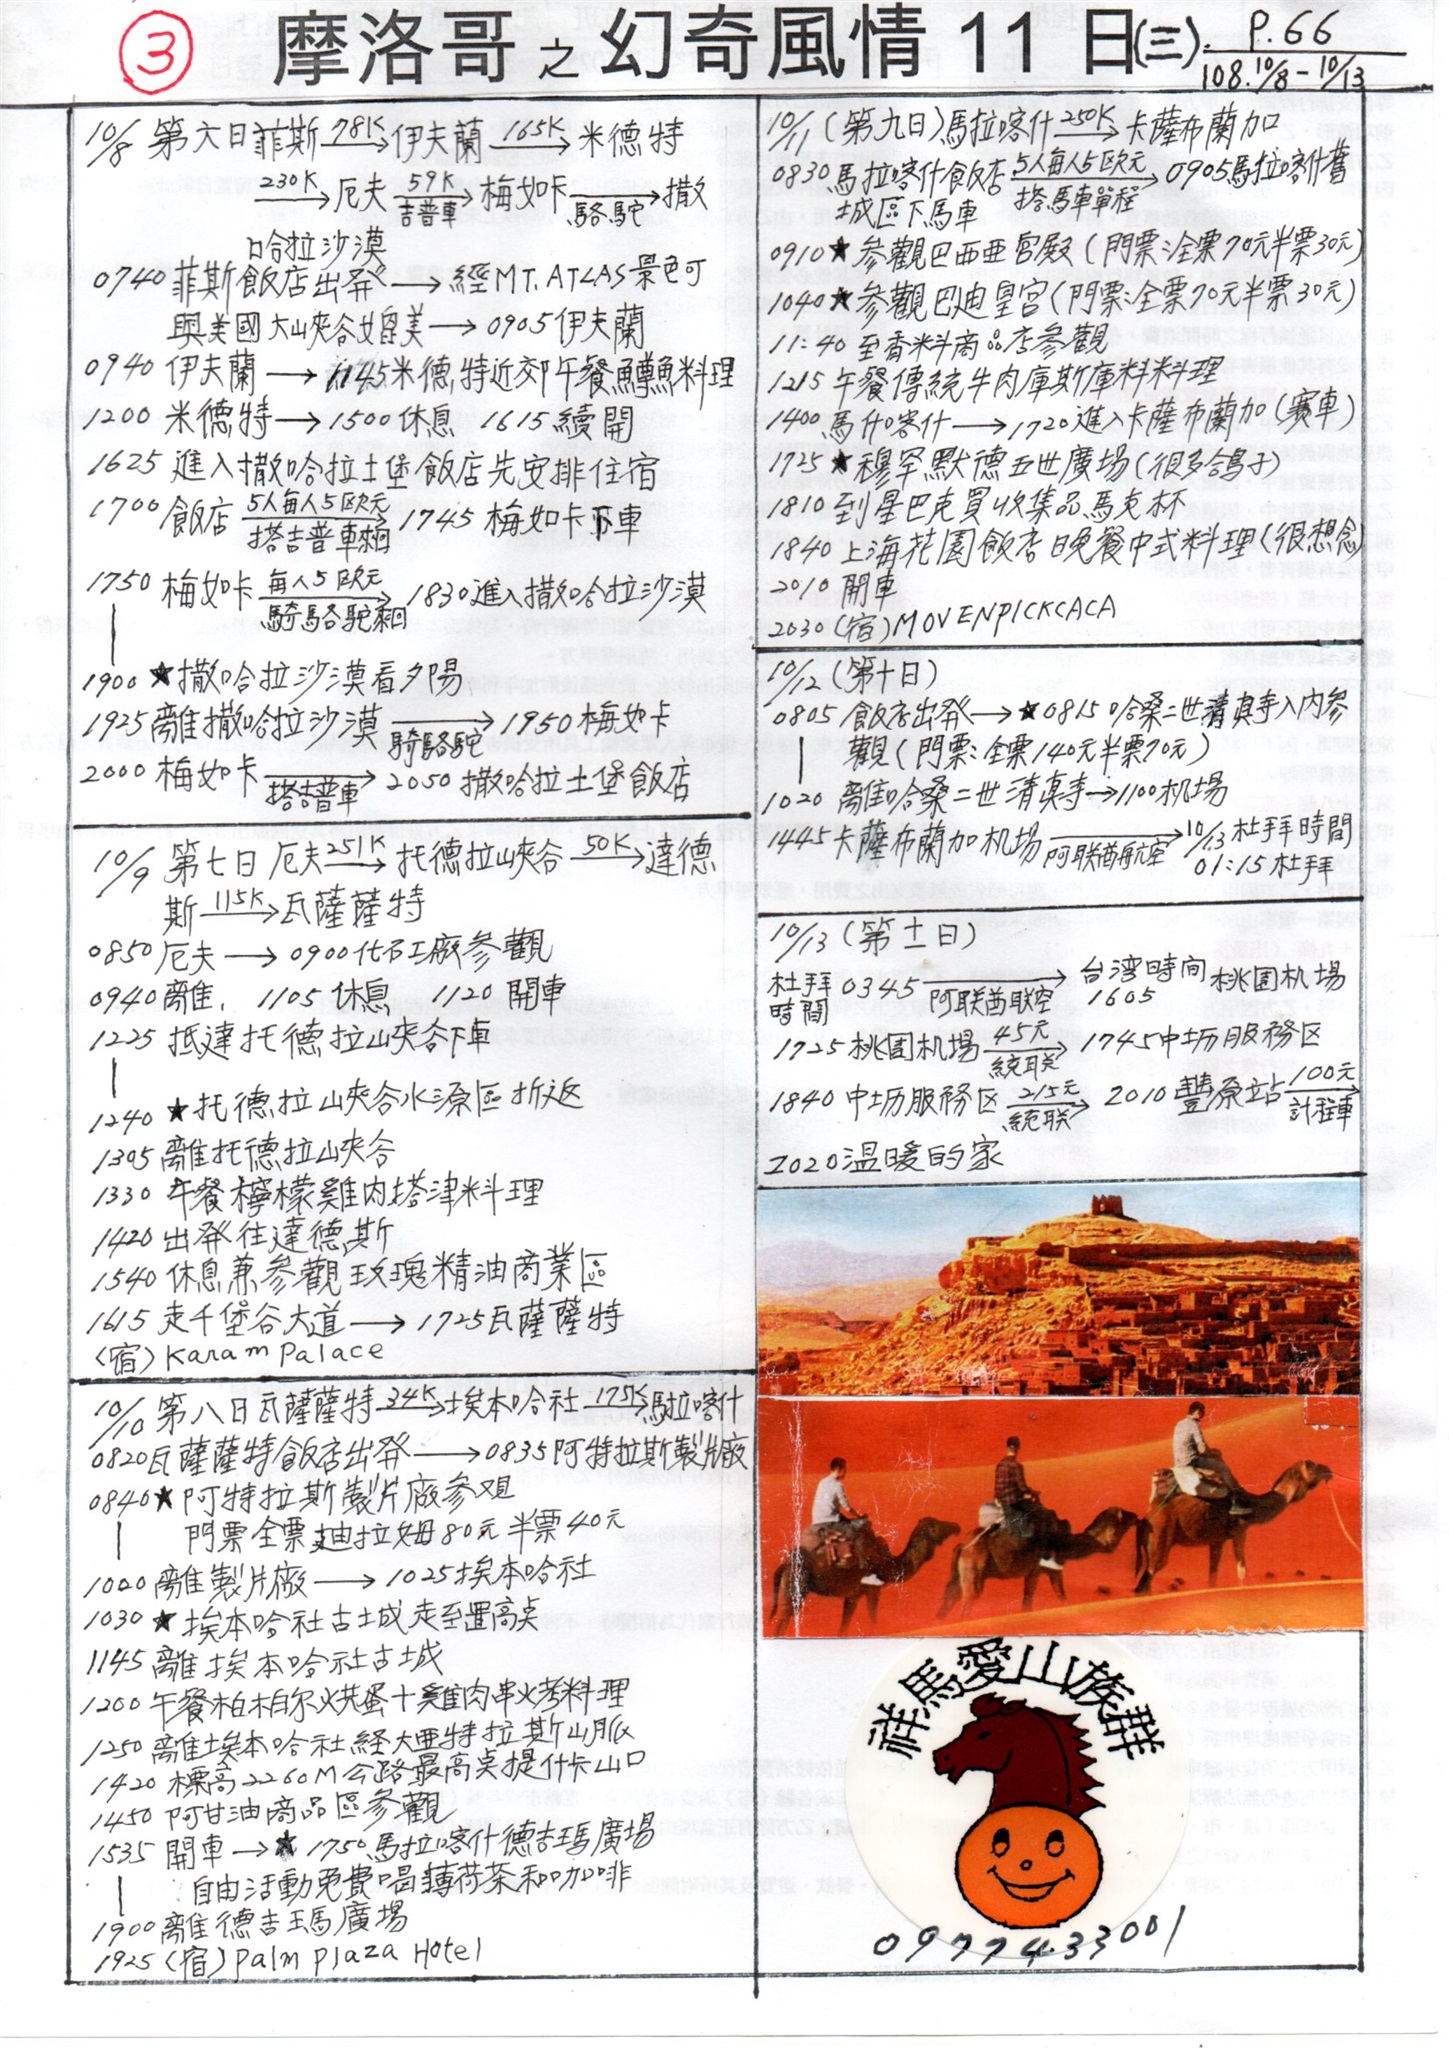 ③ 摩洛哥之幻奇風情11日(三). P.66
108.10/8-10/13
10/8 第六日菲斯 78K→ 伊夫蘭 165K→ 米德特
230K→ 厄夫 59K 吉普車→ 梅如卡 駱駝→ 撒
哈拉沙漠
0740 菲斯飯店出發→經MT.ATLAS景色可
與美國大山夾谷媲美→0905伊夫蘭
0940 伊夫蘭→1145米德特近郊午餐鱒魚料理
1200 米德特→1500休息 1615續開
1625 進入撒哈拉土堡飯店先安排住宿
1700 飯店 5人每人5歐元 搭吉普車→ 1745 梅如卡下車
1750 梅如卡 每人5歐元 騎駱駝→ 1830進入撒哈拉沙漠
|
1900 ★撒哈拉沙漠看夕陽
1925離撒哈拉沙漠 騎駱駝→ 1950梅如卡
2000梅如卡 搭吉普車→ 2050撒哈拉土堡飯店
10/9 第七日 厄夫 251K→ 托德拉峽谷 50K→ 達德
斯 115K→ 瓦薩薩特
0850厄夫→0900化石工廠參觀
0940離, 1105休息 1120開車
1225 抵達托德拉峽谷下車
|
1240 ★托德拉峽谷水源區折返
1305離托德拉峽谷
1330 午餐檸檬雞肉塔津料理
1420 出發往達德斯
1540 休息兼參觀玫瑰精油商業區
1615 走千堡谷大道→1725瓦薩薩特
(宿) Karam Palace
10/10 第八日瓦薩薩特 34K→ 埃本哈社 175K→ 馬拉喀什
0820瓦薩薩特飯店出發→0835阿特拉斯製片廠
0840★阿特拉斯製片廠參觀
| 門票全票迪拉姆80元半票40元
1020離製片廠→1025埃本哈社
1030 ★埃本哈社古城走至置高点
1145離埃本哈社古城
1200午餐柏柏尔烘蛋十雞肉串火考料理
1250離埃本哈社經大亜特拉斯山脈
1420 標高2260M公路最高点提什卡山口
1450 阿甘油商品區參觀
1535 開車→★ 1750馬拉喀什德吉瑪廣場
| 自由活動免費喝薄荷茶和咖啡
1900離德吉瑪廣場
1925(宿) Palm Plaza Hotel
10/11 (第九日)馬拉喀什 250K→ 卡薩布蘭加
0830馬拉喀什飯店 5人每人5欧元 搭馬車單程→ 0905馬拉喀什舊
城區下馬車
0910★參觀巴西亜宮殿(門票:全票70元半票30元)
1040★參觀巴迪皇宮(門票:全票70元半票30元)
11:40 至香料商品店參觀
1215 午餐傳統牛肉庫斯庫料料理
1400馬什喀什→1720進入卡薩布蘭加(賽車)
1725★穆罕默德五世廣場(很多鴿子)
1810到星巴克買收集品馬克杯
1840上海花園飯店晚餐中式料理(很想念
2010 開車
2030(宿)MOVENPICKCACA
10/12 (第十日)
0805 飯店出発→★0815哈桑二世清真寺入内參
| 觀(門票:全票140元半票70元)
1020 離哈桑二世清真寺→1100机场
1445卡薩布蘭加机场 阿联酋航空→ 10/13杜拜時間
01:15杜拜
10/13 (第十一日)
杜拜時間 0345 阿联酋联空→ 台湾時间 1605 桃園机場
1725桃園机場 45元 統联→ 1745中坜服務区
1840中坜服務区 215元 統联→ 2010豐原站 100元 計程車→
2020温暖的家
祥馬愛山族群
0977433001